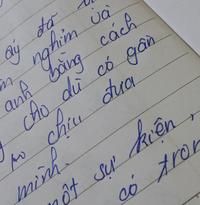 ấy đã
nghiệm và
anh bằng cách
cho dù có gần
chịu đưa
mình.
một sự kiện,
có tron